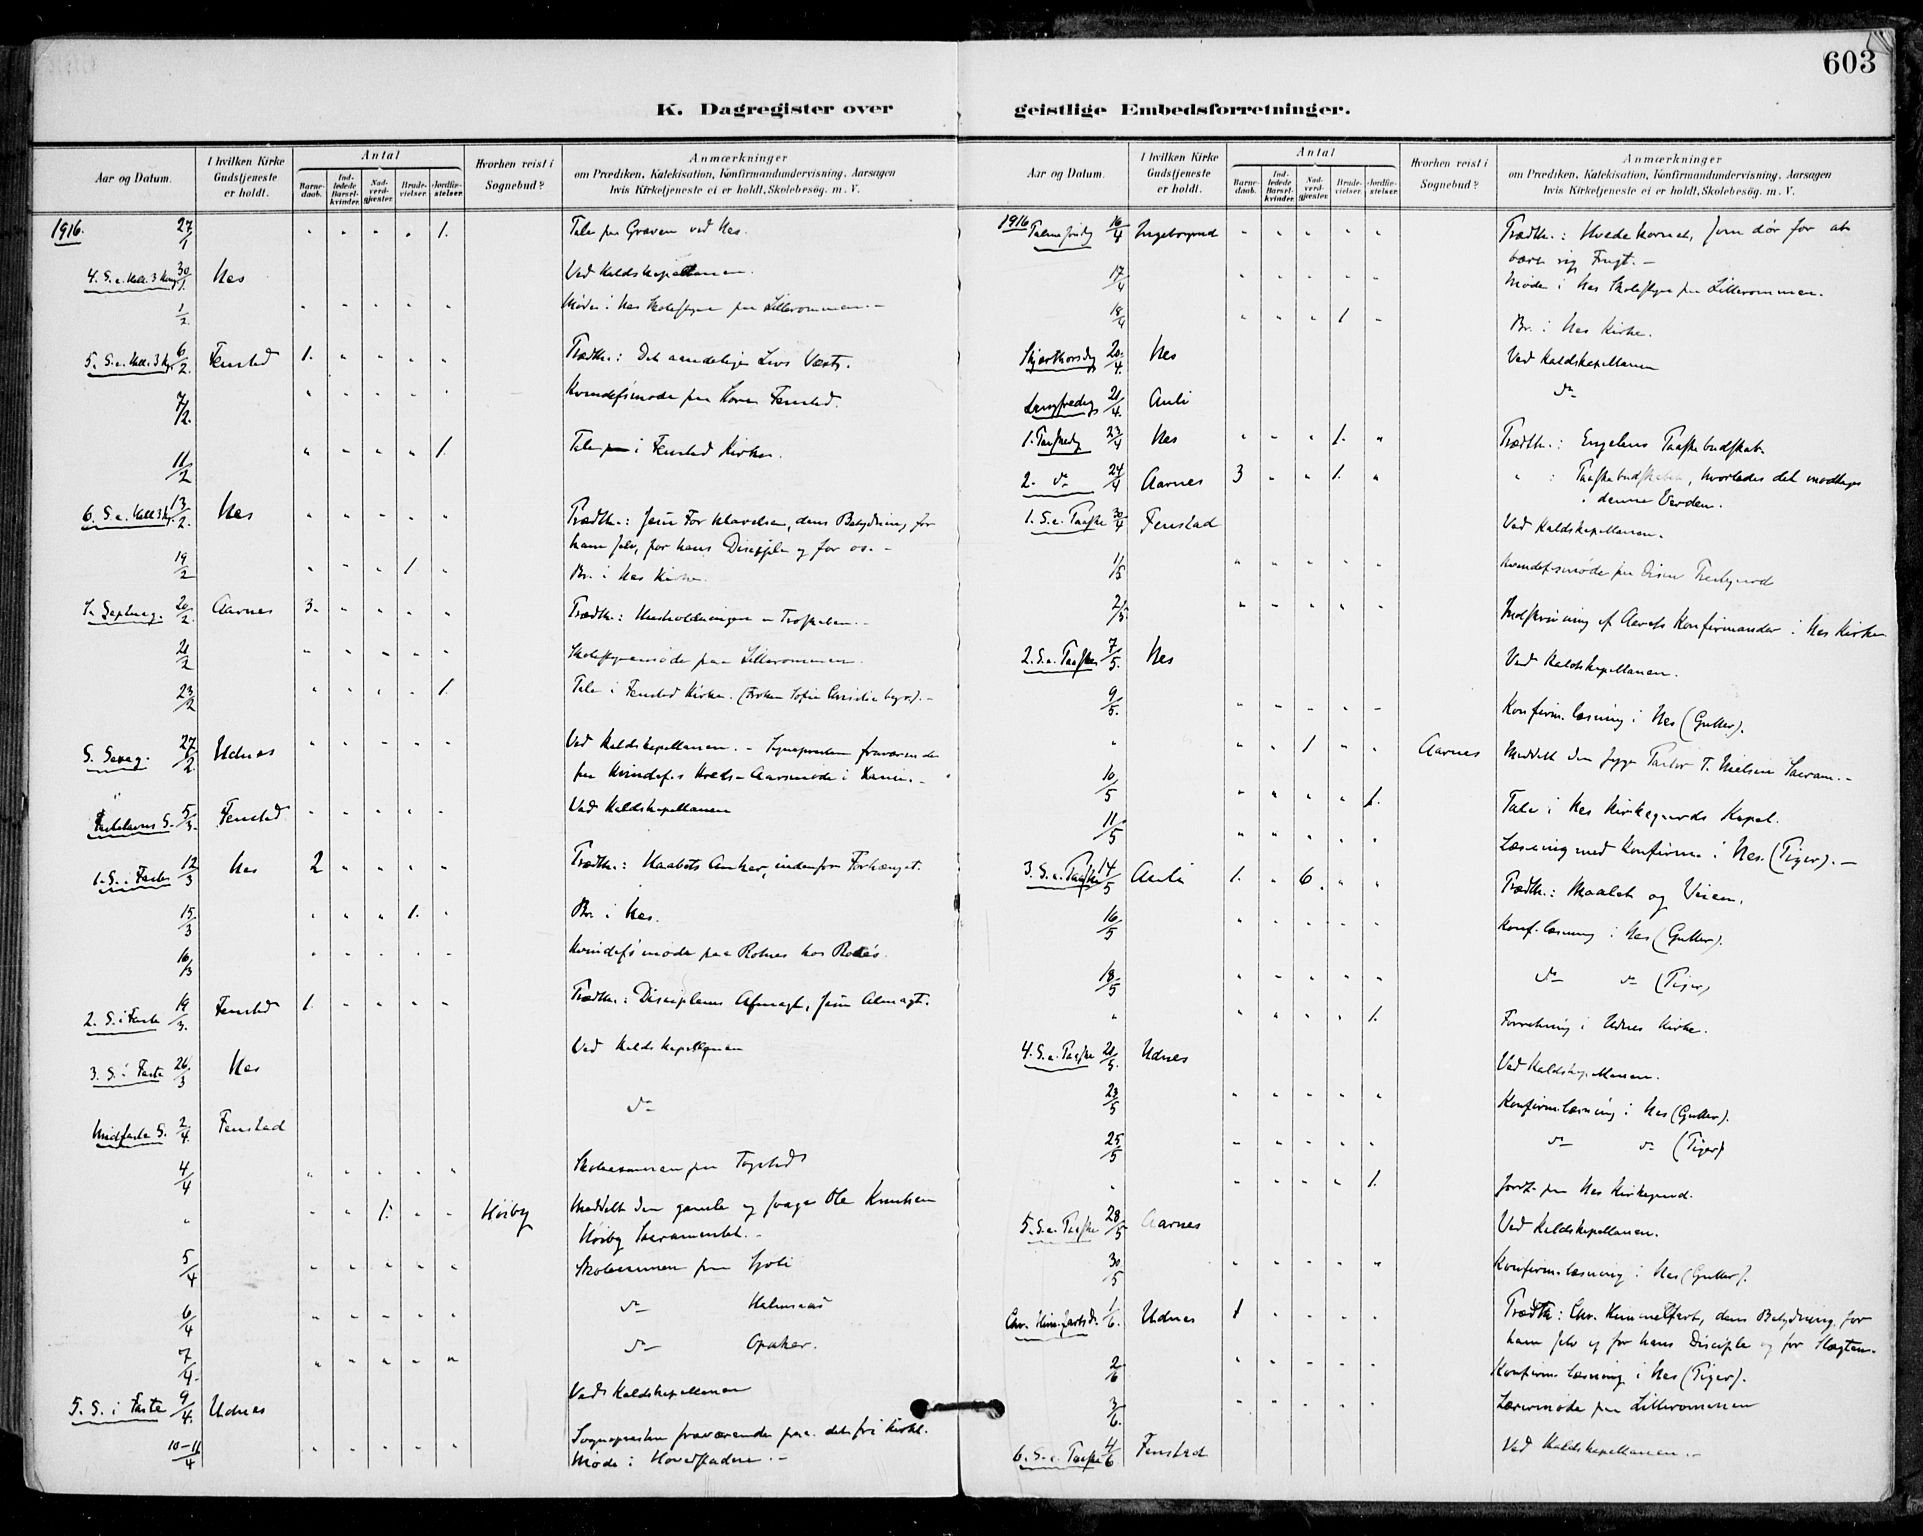 603
K. Dagregister over
Aar og Datum.
I hvilken Kirke Gudstjeneste er holdt.
Antal
Barne-daab.
Ind-ledede Barsel-kvinder.
Nad-verd-gjester.
Brude-vielser.
Jordfæ-stelser.
Hvorhen reist i Sognebud?
Anmærkninger
om Prædiken, Katekisation, Konfirmandundervisning, Aarsagen
hvis Kirketjeneste ei er holdt, Skolebesøg. m. V.
1916. 27/1 " " " " 1. Tale paa Graven ved Nes.
4. S. e. Hell. 3 Kong. 30/1 Nes Ved Kaldskapellanen.
1/2 " " " " " Møde i Nes Skolestyre paa Lilleromnen. -
5. S. e. Hell. 3 Kg. 6/2 Fenstad 1. " " " " Prædth.: Det aandelige Livs Vækst.
7/2. " " " " " Kvindefsmøde paa Horn Fenstad.
11/2 " " " " 1. Tale i Fenstad Kirke.
6. S. e. Hell. 3 Kg. 13/2. Nes " " " " " Prædth.: Jesu Forklarelse, dens Betydning for
ham selv, for hans Disciple og for os. -
19/2 " " " 1 " Br. i Nes Kirke.
S. Septuag. 20/2. Aarnes 3. " " " " Prædth.: Husholdningen - Troskaben. -
21/2 " " " " " Skolestyremøde paa Lilleromnen.
23/2 " " " " 1. Tale i Fenstad Kirke. (Frøken Sofie Christie begr.). -
S. Sexag. 27/2. Udnes " " " " " Ved Kaldskapellanen. - Sognepresten fraværende
paa Kvindef.s Kreds-Aarsmøde i -
Fastelavns S. 5/3. Fenstad " " " " " Ved Kaldskapellanen
1. S. i Faste 12/3 Nes 2 " " " " Prædth.: Haabets Anker, indenfor Forhænget.
15/3 " " " 1. " Br. i Nes.
16/3 " " " " " Kvindefsmøde paa Rotnes hos
2. S. i Faste 19/3. Fenstad 1. " " " " Prædth.: Disciplenes Afmagt, Jesu Almagt.
3. S. i Faste 26/3 Nes Ved Kaldskapellanen
Midfaste S. 2/4. Fenstad do
4/4 " " " " " Skoleexamen paa Togstad
" " " 1. " " Hørby Meddelt den gamle og svage Ole Knudsen
Hørby Sacramentet. -
5/4 " " " " " Skoleexamen paa Sjoli
6/4 " " " " " do Halmraas
7/4. " " " " " do Opaker.
5. S. i Faste 9/4. Udnes Ved Kaldskapellanen
10-11/4 " " " " " Sognepresten fraværende paa det fri kirkl.
Møde i Hovedstaden. -
geistlige Embedsforretninger.
Aar og Datum.
I hvilken Kirke Gudstjeneste er holdt.
Antal
Barne-daab.
Ind-ledede Barsel-kvinder.
Nad-verd-gjester.
Brude-vielser.
Jordfæ-stelser.
Hvorhen reist i Sognebud?
Anmærkninger
om Prædiken, Katekisation, Konfirmandundervisning, Aarsagen
hvis Kirketjeneste ei er holdt, Skolebesøg. m. V.
1916 Palmesøndg 16/4 Ingeborgrud " " " " " Prædth.: Hvedekornet, som dør for at
bære rig Frugt. -
17/4 " " " " " Møde i Nes Skolestyre paa Lilleromnen.
18/4 " " " 1 " Br. i Nes Kirke.
Skjærthorsdg 20/4. Nes Ved Kaldskapellanen
Langfredag 21/4. Auli do
1. Paaskedg 23/4 Nes " " " 1. " Prædth.: Engelens Paaskebudskab.
2. do 24/4 Aarnes 3 " " 1. " " : Paaskebudskabet, hvorledes det modtages
i denne Verden.
1. S. e. Paaske 30/4 Fenstad Ved Kaldskapellanen.
1/5 " " " " " Kvindefsmøde paa
2/5. " " " " " Indskrivning af Aarets Konfirmander i Nes Kirke.
2. S. e. Paaske 7/5. Nes Ved Kaldskapellanen.
9/5. " " " " " Konfirm.læsning i Nes (Gutter).
" " " 1 " " Aarnes Meddelt den syge Pastor T. Nielsen Sacram. -
10/5 " " " " 1. Tale i Nes Kirkegaards Kapel.
11/5 " " " " " Læsning med Konfirm. i Nes. (Piger). -
3. S. e. Paaske 14/5 Auli 1. " 6. " " Prædth.: Maalet og Veien.
16/5 " " " " " Konf.læsning i Nes (Gutter).
18/5 " " " " " do do (Piger)
" " " " " 1. Forretning i Udnes Kirke.
4. S. e. Paaske 21/5. Udnes Ved Kaldskapellanen.
23/5 " " " " " Konfirm.læsning i Nes (Gutter).
25/5 " " " " " do do (Piger)
" " " " " 1. Jordf. paa Nes Kirkegaard.
5. S. e. Paaske 28/5 Aarnes Ved Kaldskapellanen.
30/5 " " " " " Konfirm.læsning i Nes (Gutter).
Chr. Himmelfartsd. 1/6. Udnes 1 " " " " Prædth.: Chr. Himmelfart, dens Betydning for
ham selv og for hans Disciple og for Slægten.
2/6 " " " " " Konfirm.læsning i Nes (Piger).
3/6. " " " " " Lærermøde paa Lilleromnen
6. S. e. Paaske 4/6 Fenstad Ved Kaldskapellanen. -